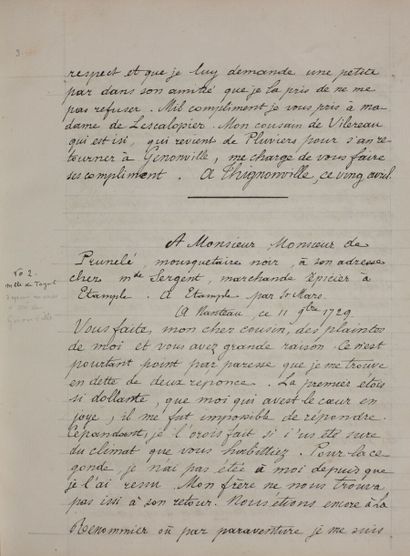 3.
respect et que je luy demande une petite
par dans son amitié que je la pris de ne me
pas refuser. Mil compliment je vous pris à ma-
dame de Lescalopier. Mon cousain de Vilereau
qui est isi, qui revient de Pluviers pour s'an re-
tourner à Genonville, me charge de vous faire
ses compliment. A Thignonville, ce vingt avril.
A Monsieur Monsieur de
Prunelé, mousquetaire noir, à son adresse
cher mde Sergent, marchande épicier à
Etample. A Etample par St Mars.
No 2.
A Nanteau, ce 11 9bre 1729.
Vous faite, mon cher cousin, des plaintes
de moi et vous avez grande raison. Ce n'est
pourtant point par paresse que je me trouve
en dette de deux reponce. La premier etois
si dollante, que moi qui avest le cœur en
joye, il me fut imposible de répondre.
Cepandant, je l'orois fait si j'us été sure
du climat que vous habittiez. Pour la ce-
gonde, je n'ai pas étée à moi depuis que
je l'ai resu. Mon frère ne nous trouva
pas issi à son retour. Nous étions encore à la
Renommier où par paraventure je me suis